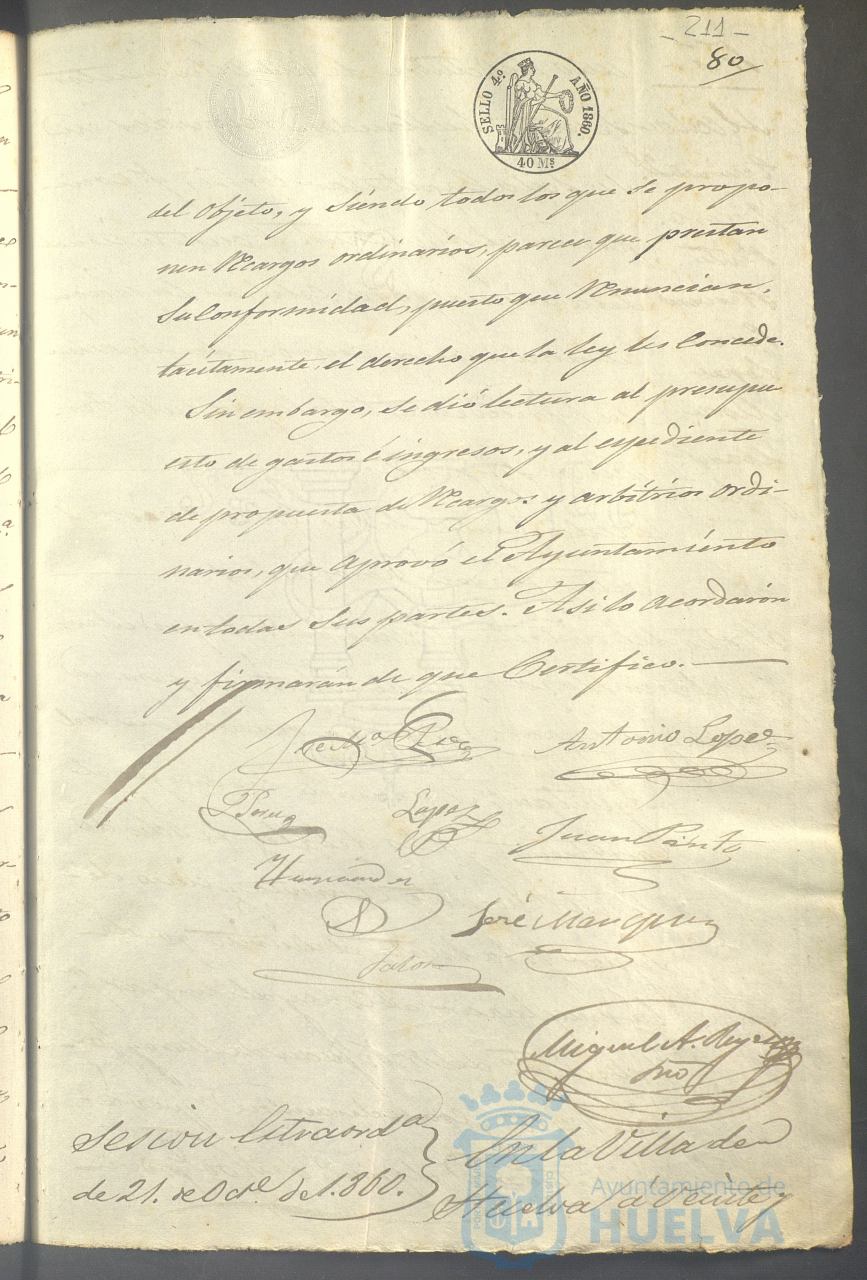 - 211 -
80
SELLO 4.º AÑO 1860.
40 Ms
del objeto, y siendo todos los que se propo-
nen Recargos ordinarios, parece que prestan
su conformidad, puesto que Renuncian,
tácitamente, el derecho que la ley les Concede.
Sin embargo, se dió lectura al presupu
esto de gastos é ingresos, y al espediente
de propuesta de Recargos y arbitrios ordi-
narios, que aprovó el Ayuntamiento
en todas sus partes. Asi lo acordarón
y firmarán de que Certifico.
Antonio Lopez
Perez Lopez
Juan Pinto
Hernandez
José Marquez
Miguel A. Reyes
Srio
Sesion Estraorda
de 21. de Oc.e de 1.860.
En la Villa de
Huelva a veinte y
Ayuntamiento de
HUELVA